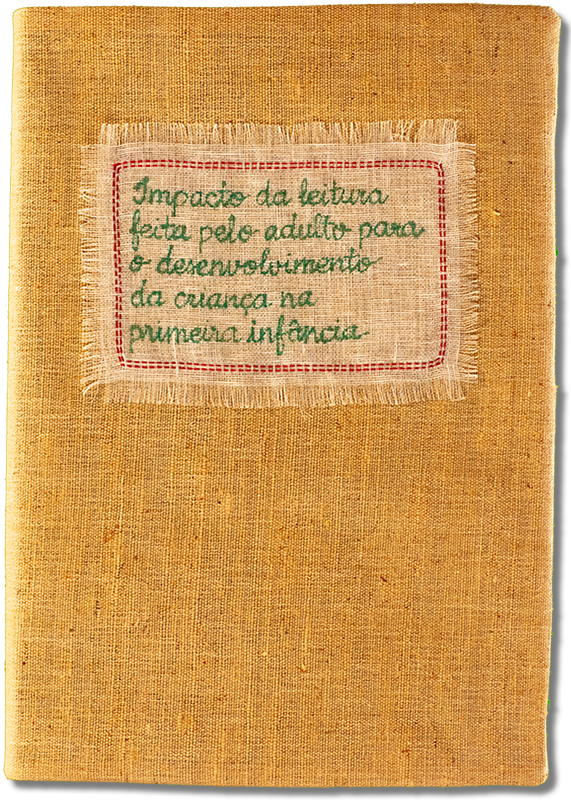 Impacto da leitura
feita pelo adulto para
o desenvolvimento
da criança na
primeira infância